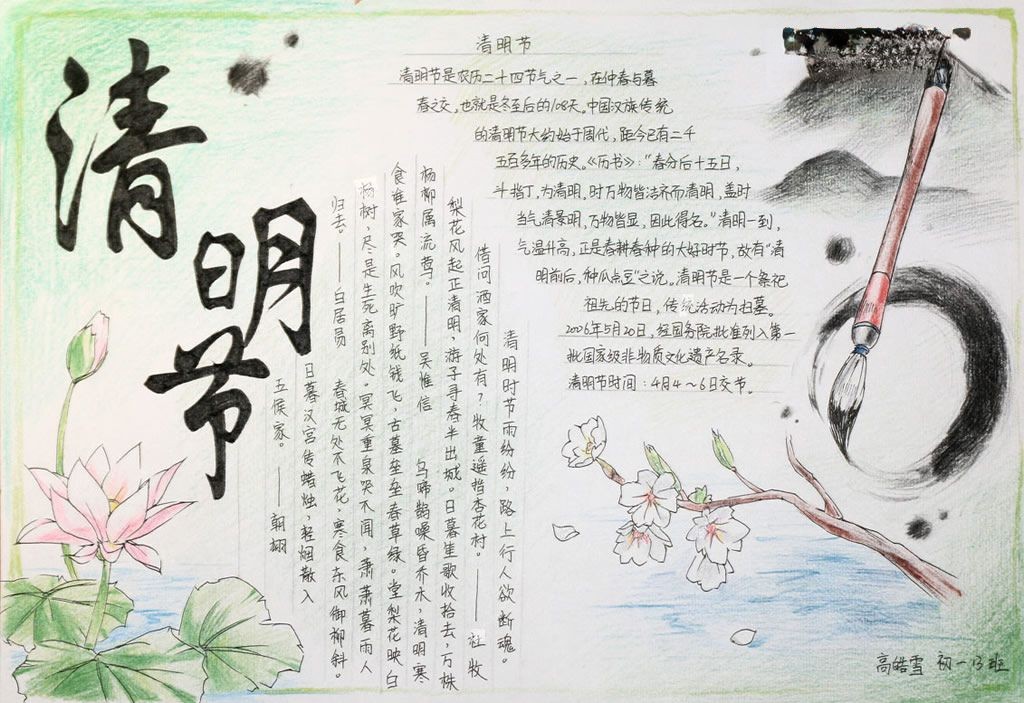 清明节
清明节
清明节是农历二十四节气之一，在仲春与暮
春之交，也就是冬至后的108天。中国汉族传统
的清明节大约始于周代，距今已有二千
五百多年的历史。《历书》：“春分后十五日，
斗指丁，为清明，时万物皆洁齐而清明，盖时
当气清景明，万物皆显，因此得名。”清明一到，
气温升高，正是春耕春种的大好时节，故有“清
明前后，种瓜点豆”之说。清明节是一个祭祀
祖先的节日，传统活动为扫墓。
2026年5月20日，经国务院批准列入第一
批国家级非物质文化遗产名录。
清明节时间：4月4～6日交节。
清明时节雨纷纷，路上行人欲断魂。
借问酒家何处有？牧童遥指杏花村。——杜牧
梨花风起正清明，游子寻春半出城。日暮笙歌收拾去，万株
杨柳属流莺。——吴惟信 乌啼鹊噪昏乔木，清明寒
食谁家哭。风吹旷野纸钱飞，古墓垒垒春草绿。堂梨花映白
杨树，尽是生死离别处。冥冥重泉哭不闻，萧萧暮雨人
归去。——白居员 春城无处不飞花，寒食东风御柳斜。
日暮汉宫传蜡烛，轻烟散入
五侯家。——朝翃
高皓雪 初一13班